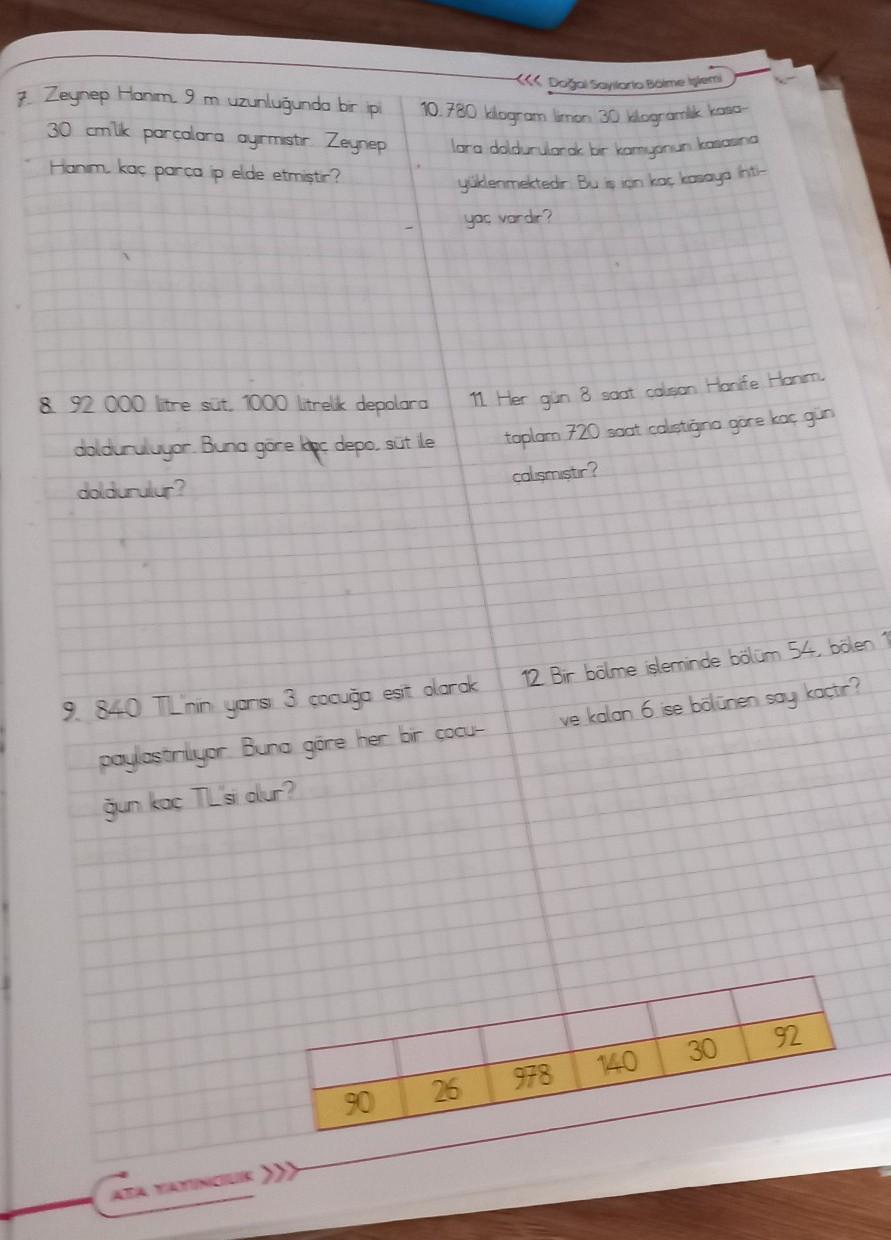 <<< Doğal Sayılarla Bölme İşlemi
7. Zeynep Hanım, 9 m uzunluğunda bir ipi
30 cm'lik parçalara ayırmıştır. Zeynep
Hanım, kaç parça ip elde etmiştir?
8. 92 000 litre süt, 1000 litrelik depolara
dolduruluyor. Buna göre kaç depo, süt ile
doldurulur?
9. 840 TL'nin yarısı 3 çocuğa eşit olarak
paylaştırılıyor. Buna göre her bir çocu-
ğun kaç TL'si olur?
10. 780 kilogram limon 30 kilogramlık kasa-
lara doldurularak bir kamyonun kasasına
yüklenmektedir. Bu iş için kaç kasaya ihti-
yaç vardır?
11. Her gün 8 saat çalışan Hanife Hanım,
toplam 720 saat çalıştığına göre kaç gün
çalışmıştır?
12. Bir bölme işleminde bölüm 54, bölen
ve kalan 6 ise bölünen sayı kaçtır?
90 26 978 140 30 92
ATA YAYINCILIK >>>